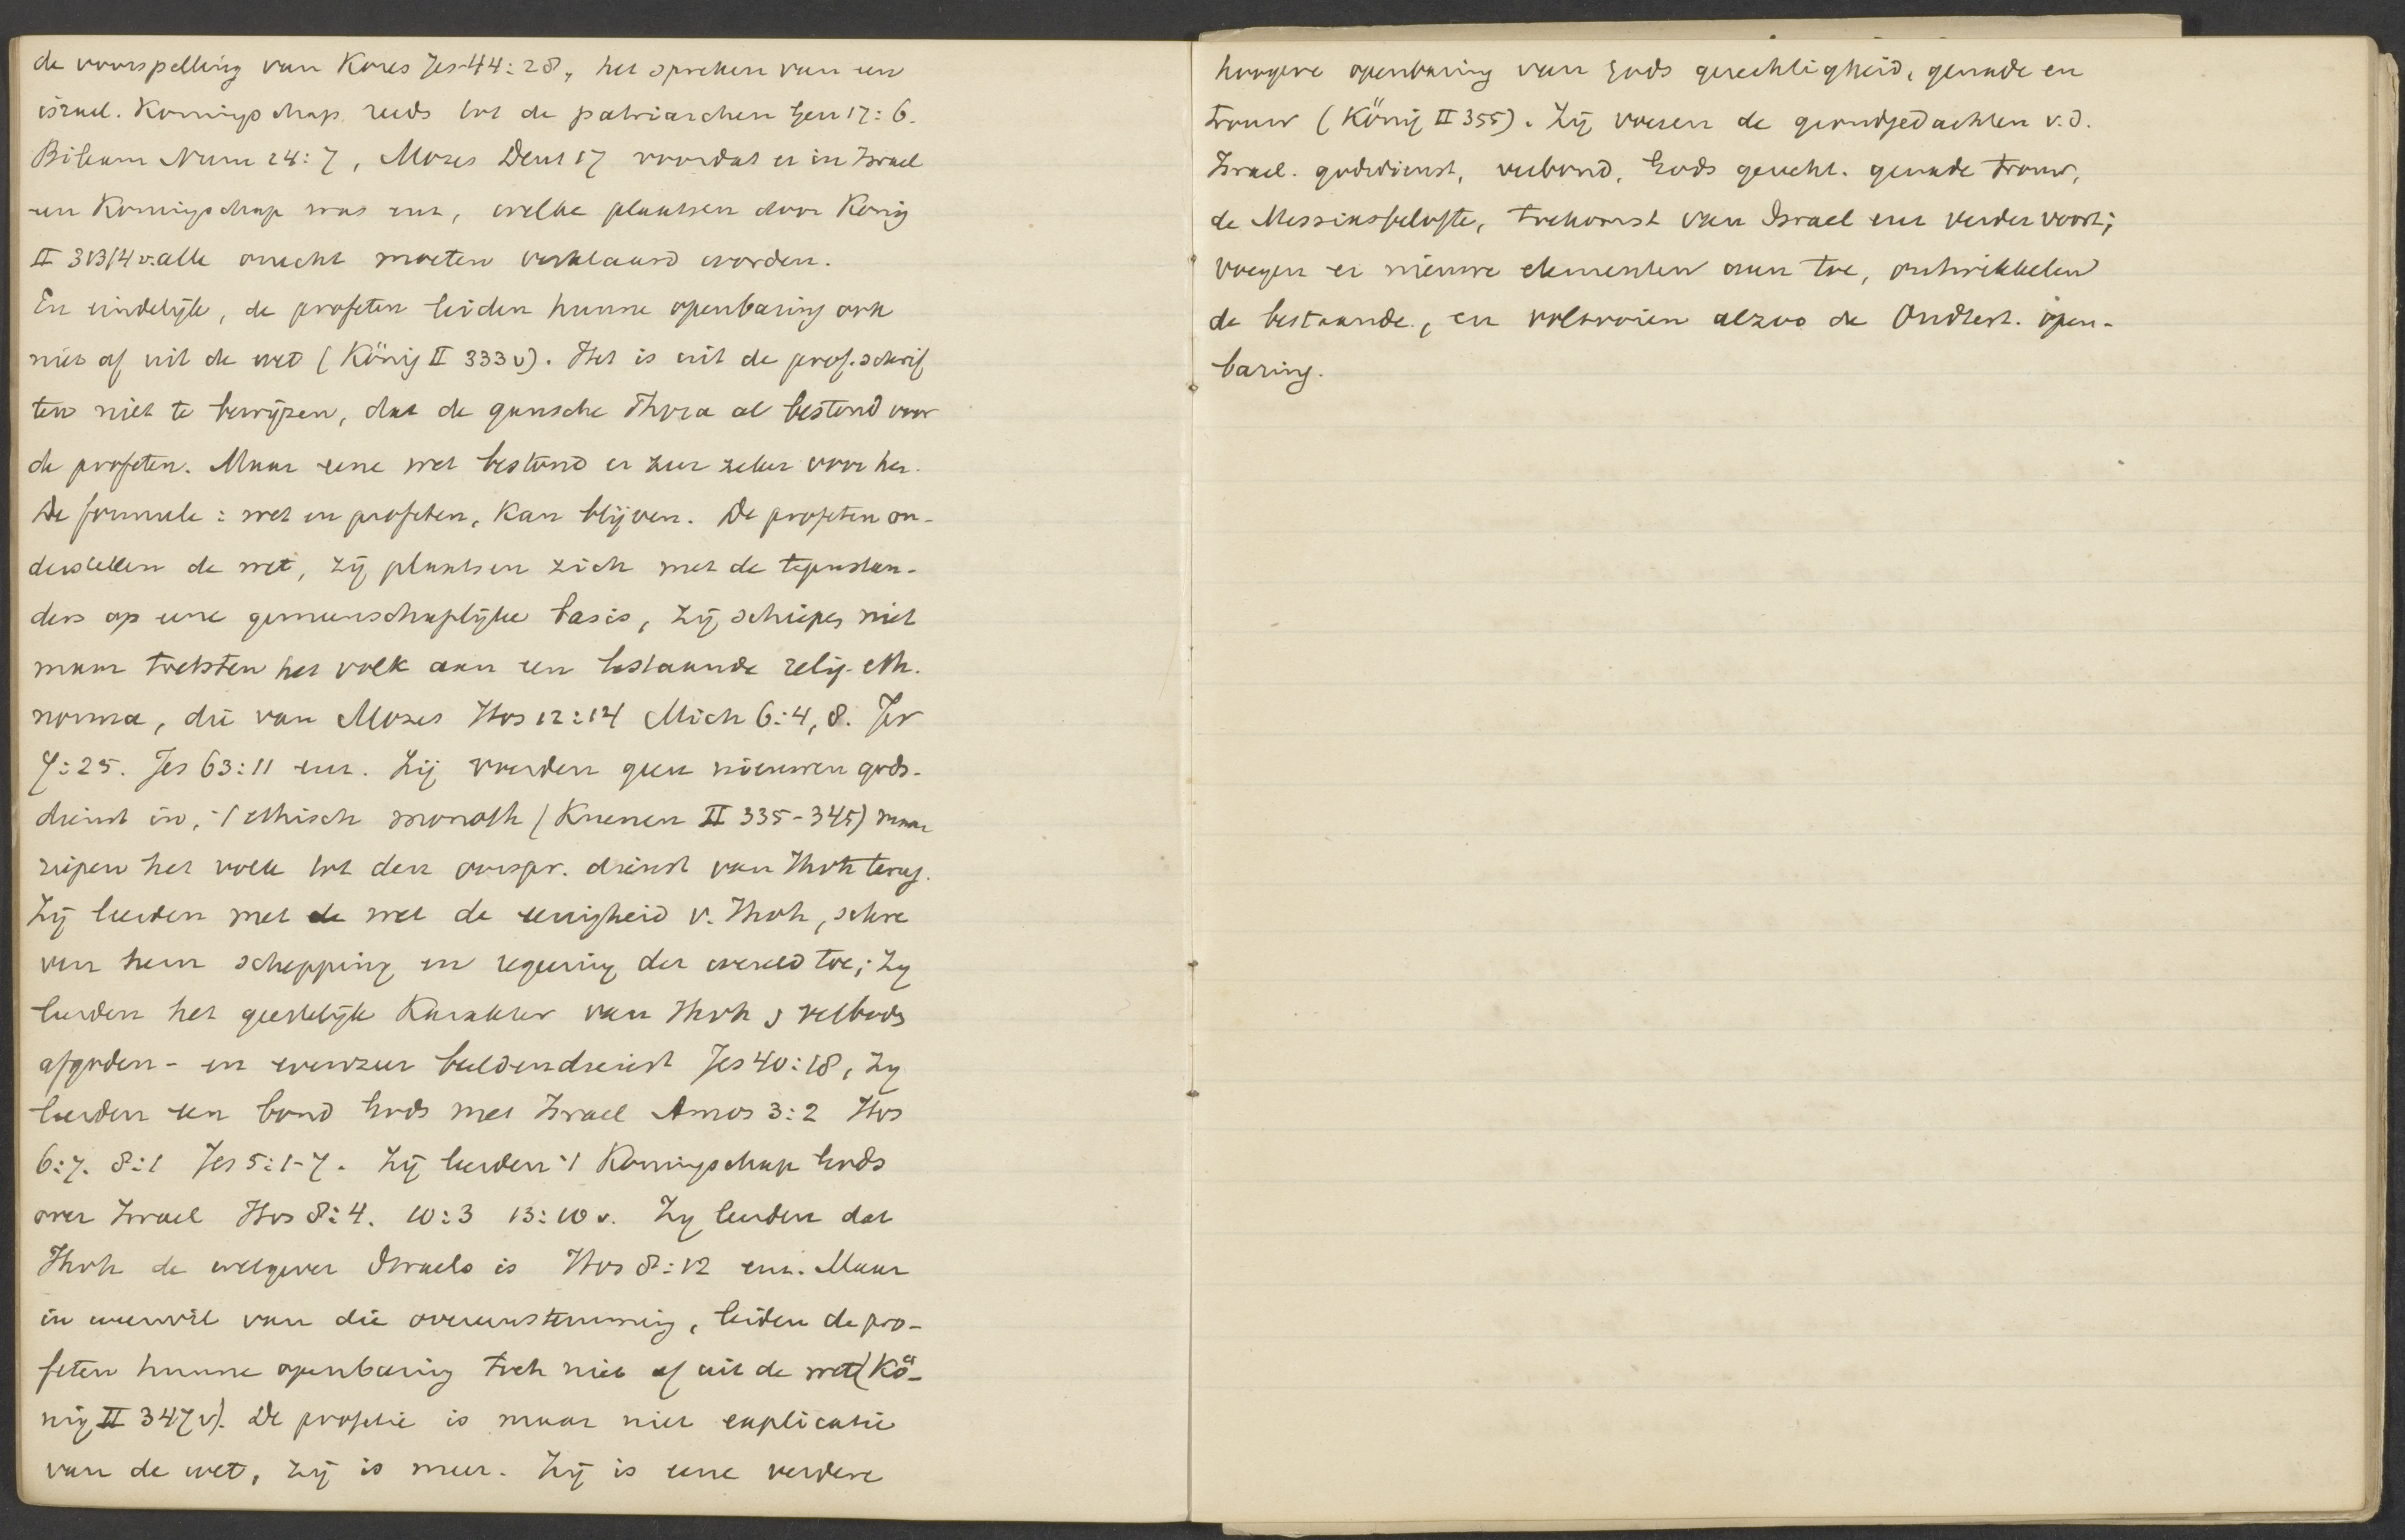 de voorspelling van Kores Jes 44:28, het spreken van een
israel. Koningschap reeds tot de patriarchen Gen 17:6.
Bileam Num 24:7, Mozes Deut 17 voordat er in Israel
een Koningschap was enz, welke plaatsen door König
II 313/4 v. alle onecht moeten verklaard worden.
En eindelijk, de profeten leiden hunne openbaring ook
niet af uit de wet (König II 333 v). Het is uit de prof. schrif
ten niet te bewijzen, dat de gansche Thora al bestond voor
de profeten. Maar eene wet bestond er zeer zeker voor hen.
De formule: wet en profeten, kan blijven. De profeten on-
derstellen de wet, zij plaatsen zich met de tegenstan-
ders op eene gemeenschaplijke basis, zij schiepen niet
maar toetsten het volk aan een bestaande relig. eth.
norma, die van Mozes Hos 12:14 Mich 6:4, 8. Jer
7:25. Jes 63:11 enz. Zij voerden geen nieuwen gods-
dienst in, 't ethisch monoth (Kuenen II 335-345) maar
riepen het volk tot den oorspr. dienst van Jhvh terug.
Zij leerden met de wet de eenigheid v. Jhvh, schre
ven hem schepping en regering der wereld toe; zij
leerden het geestelijk karakter van Jhvh & verbods
afgoden- en evenzeer beeldendienst Jes 40:18, zij
leerden een bond Gods met Israel Amos 3:2 Hos
6:7. 8:1 Jes 5:1-7. Zij leerden 't Koningschap Gods
over Israel Hos 8:4. 10:3 13:10 v. Zij leerden dat
Jhvh de wetgever Israels is Hos 8:12 enz. Maar
in weerwil van die overeenstemming, leiden de pro-
feten hunne openbaring toch niet af uit de wet (Kö-
nig II 347 v). De profetie is maar niet explicatie
van de wet, zij is meer. Zij is eene verdere
hoogere openbaring van Gods gerechtigheid, genade en
trouw (König II 355). Zij voeren de grondgedachten v.d.
Israel. godsdienst, verbond, Gods gerecht. genade trouw,
de Messiasbelofte, toekomst van Israel enz verder voort;
voegen er nieuwe elementen aan toe, ontwikkelen
de bestaande, en voltooien alzoo de Oudtest. open-
baring.